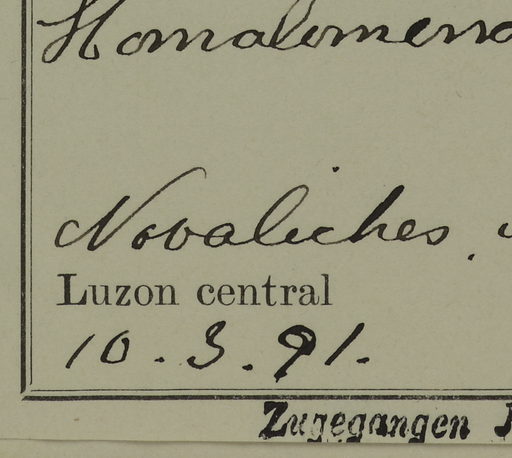 Homalomena
Novaliches.
Luzon central
10.3.91.
Zugegangen